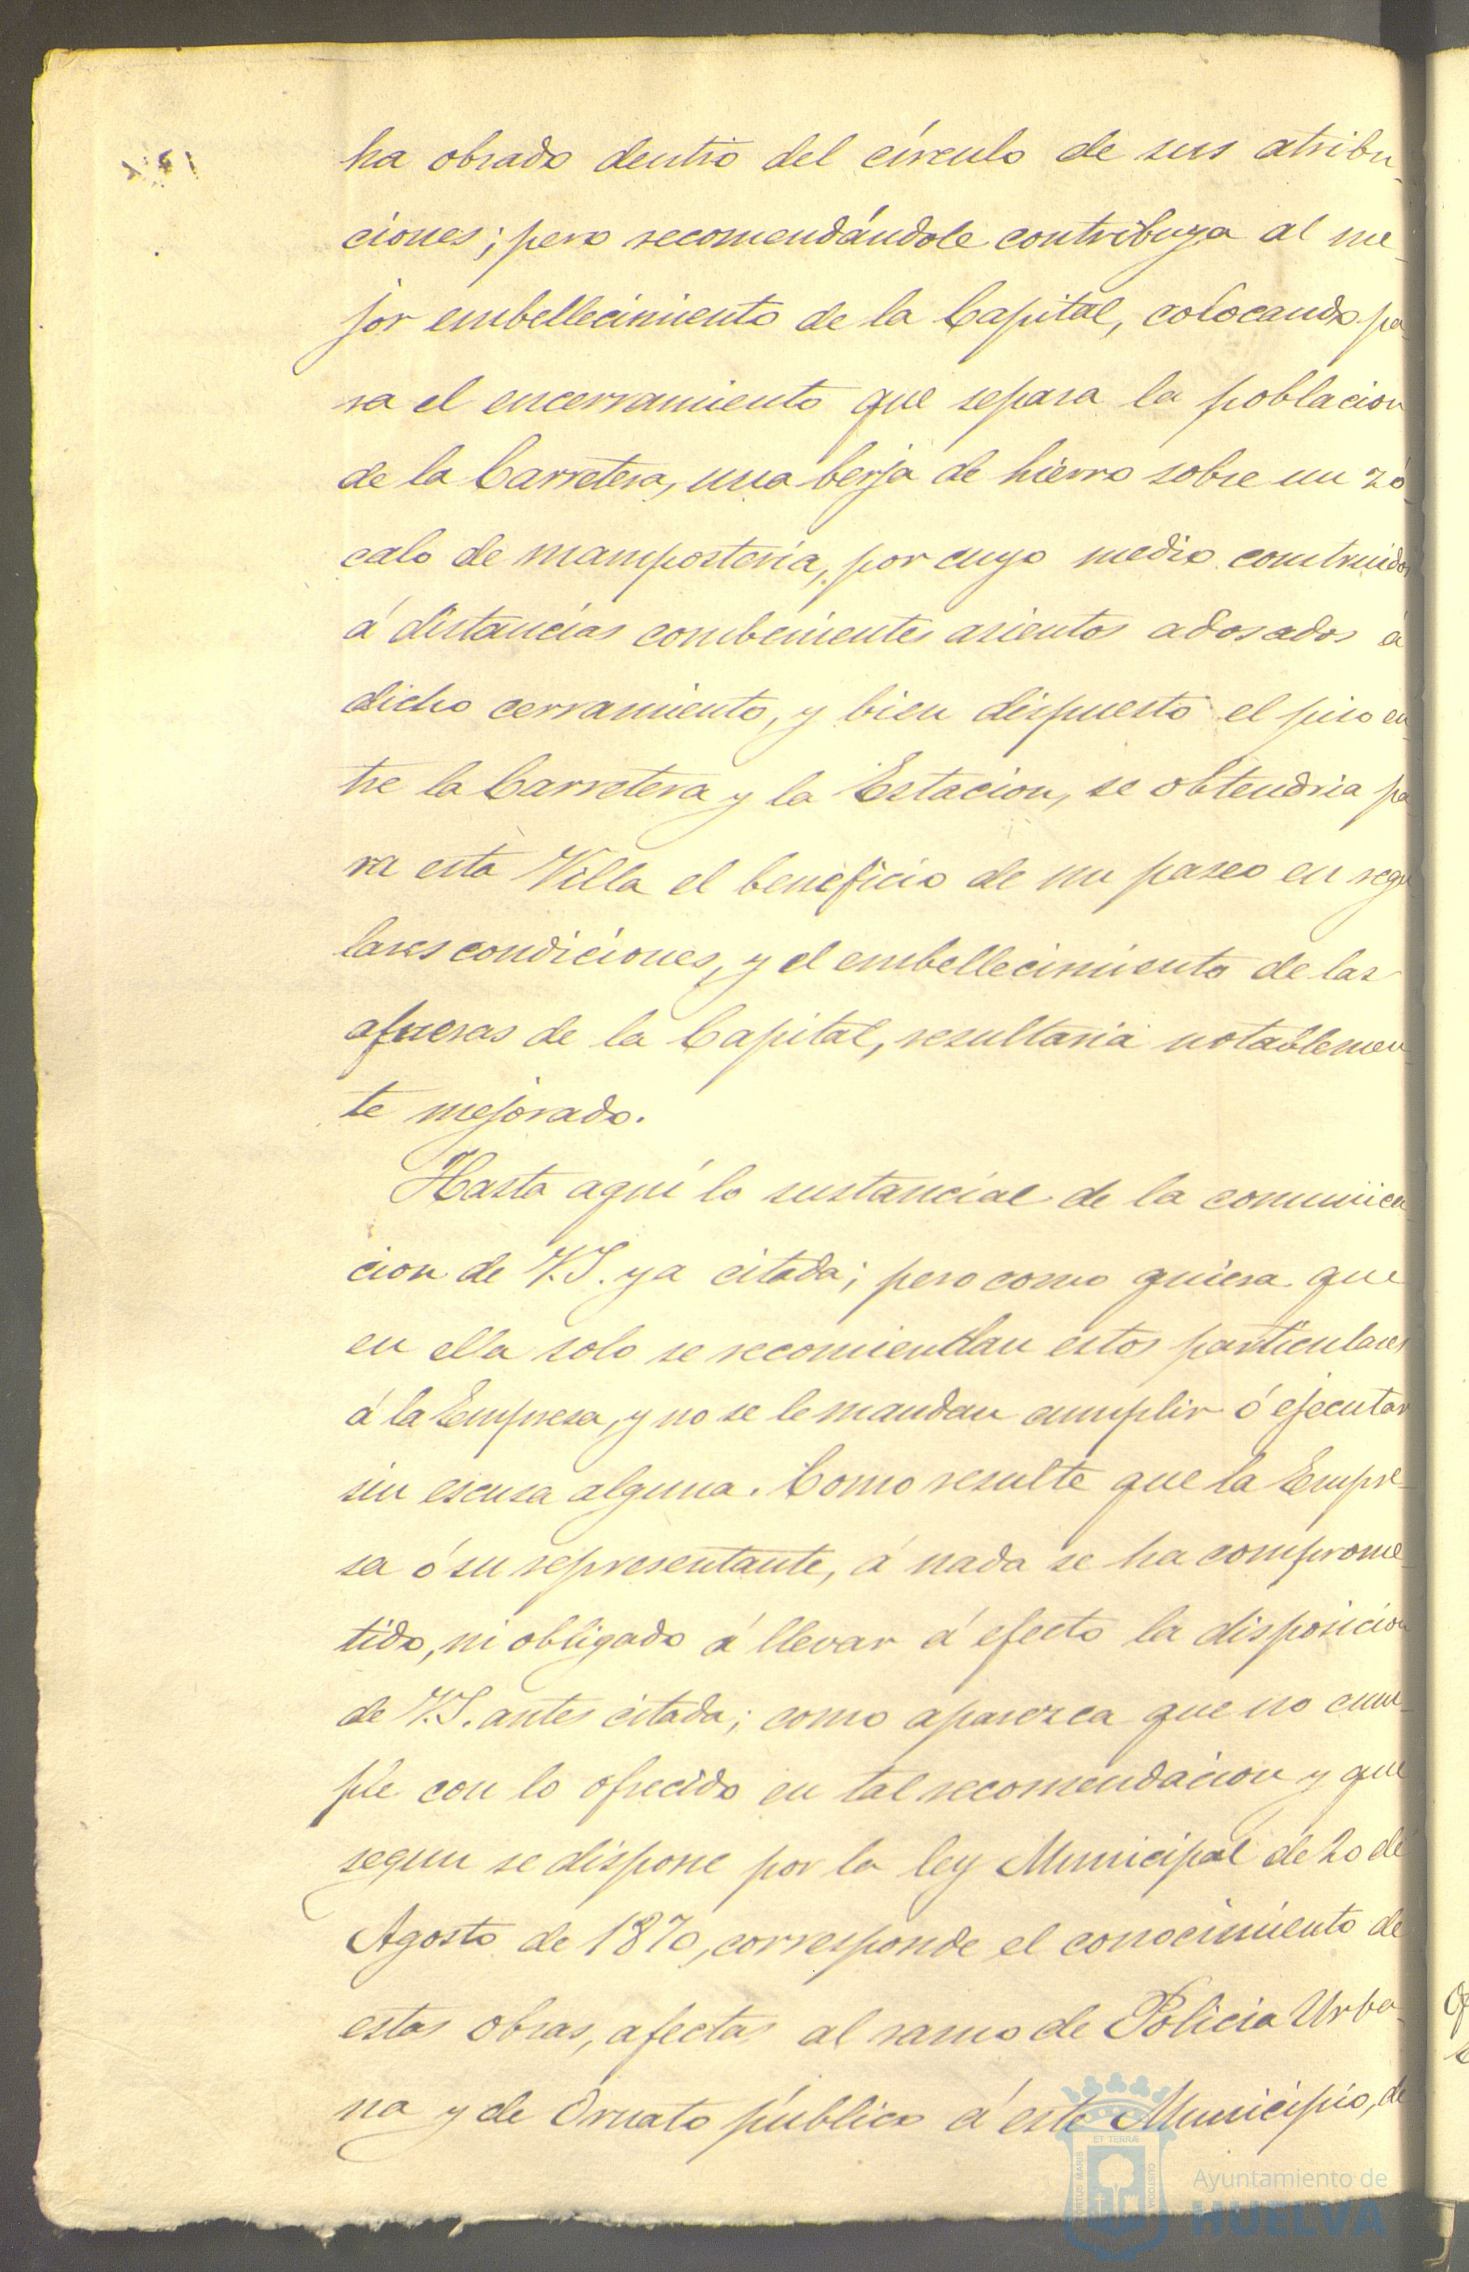 ha obrado dentro del círculo de sus atribu-
ciones; pero recomendándole contribuya al me-
jor embellecimiento de la Capital, colocando pa-
ra el encerramiento que separa la poblacion
de la Carretera, una berja de hierro sobre un zó-
calo de mampostería, por cuyo medio construidos
á distancias combenientes asientos adosados á
dicho cerramiento, y bien dispuesto el piso en-
tre la Carretera y la Estacion, se obtendria pa
ra esta Villa el beneficio de un paseo en regu
lares condiciones, y el embellecimiento de las
afueras de la Capital, resultaria notablemen
te mejorado.
Hasta aquí lo sustancial de la comunica
cion de V.S. ya citada; pero como quiera que
en ella solo se recomiendan estos particulares
á la Empresa, y no se le mandan cumplir ó ejecutar
sin escusa alguna. Como resulte que la Empre-
sa ó su representante, á nada se ha comprome-
tido, ni obligado á llevar á efecto la disposicion
de V.S. antes citada; como aparezca que no cum-
ple con lo ofrecido en tal recomendacion y que
segun se dispone por la ley Municipal de 20 de
Agosto de 1870, corresponde el conocimiento de
estas obras, afectas al ramo de Policia Urba-
na y de Ornato público á este Municipio, de
ET TERRÆ
MARIS
CUSTODIA
Ayuntamiento de
HUELVA